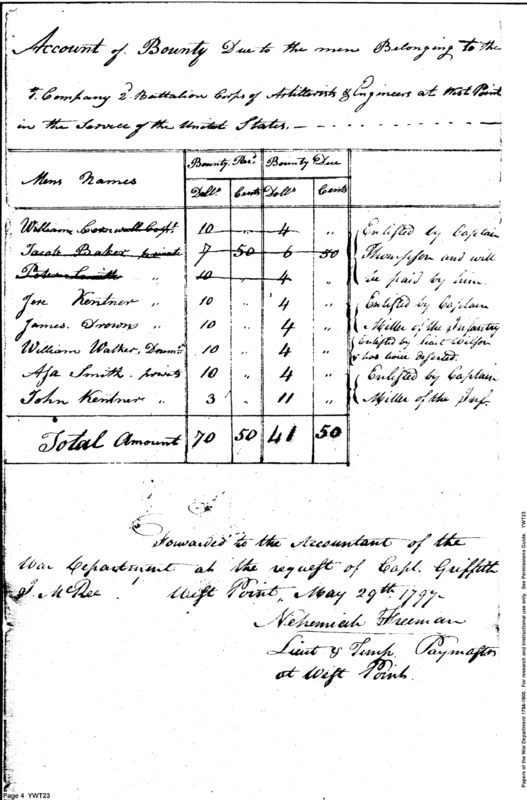 Account of Bounty Due to the men Belonging to the
Company 2d Battalion Corps of Artillerists & Engineers at West Point
in the Service of the United States.
Mens Names Bounty Pad. Bounty Due
Dolls. Cents Dolls Cents
William Cornwell Corpl. 10 " 4 " Enlisted by Captain
Jacob Baker private 7 50 6 50 Thompson and will
Peter Smith " 10 " 4 " be paid by him.
Jere Kentner " 10 " 4 " Enlisted by Captain
James Drown " 10 " 4 " Miller of the Infantry
William Walker, Drumr. 10 " 4 " Enlisted by Lieut Wilson
& has twice deserted.
Asa Smith private 10 " 4 " Enlisted by Captain
John Kentner " 3 " 11 " Miller of the Inf.
Total Amount 70 50 41 50
Forwarded to the Accountant of the
War Department at the request of Capt. Griffith
J. McRee West Point, May 29th 1797
Nehemiah Freeman
Lieut & Temp. Paymaster
at West Point.
Page 4 YWT23
Papers of the War Department 1784-1800. For research and instructional use only. See Permissions Guide. YWT23